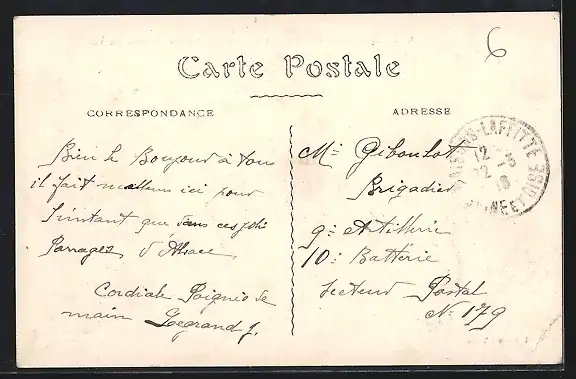 6
Carte Postale
CORRESPONDANCE
ADRESSE
Bien le Bonjour à Tous
il fait meilleur ici pour
l'instant que dans ces jolis
Parages d'Alsace
Cordiale Poignée de
main Legrand J.
MAISONS-LAFFITTE
12 - 5
22
16
SEINE ET OISE
Mr Giboulot
Brigadier
9e Artillerie
10e Batterie
Secteur Postal
No 179